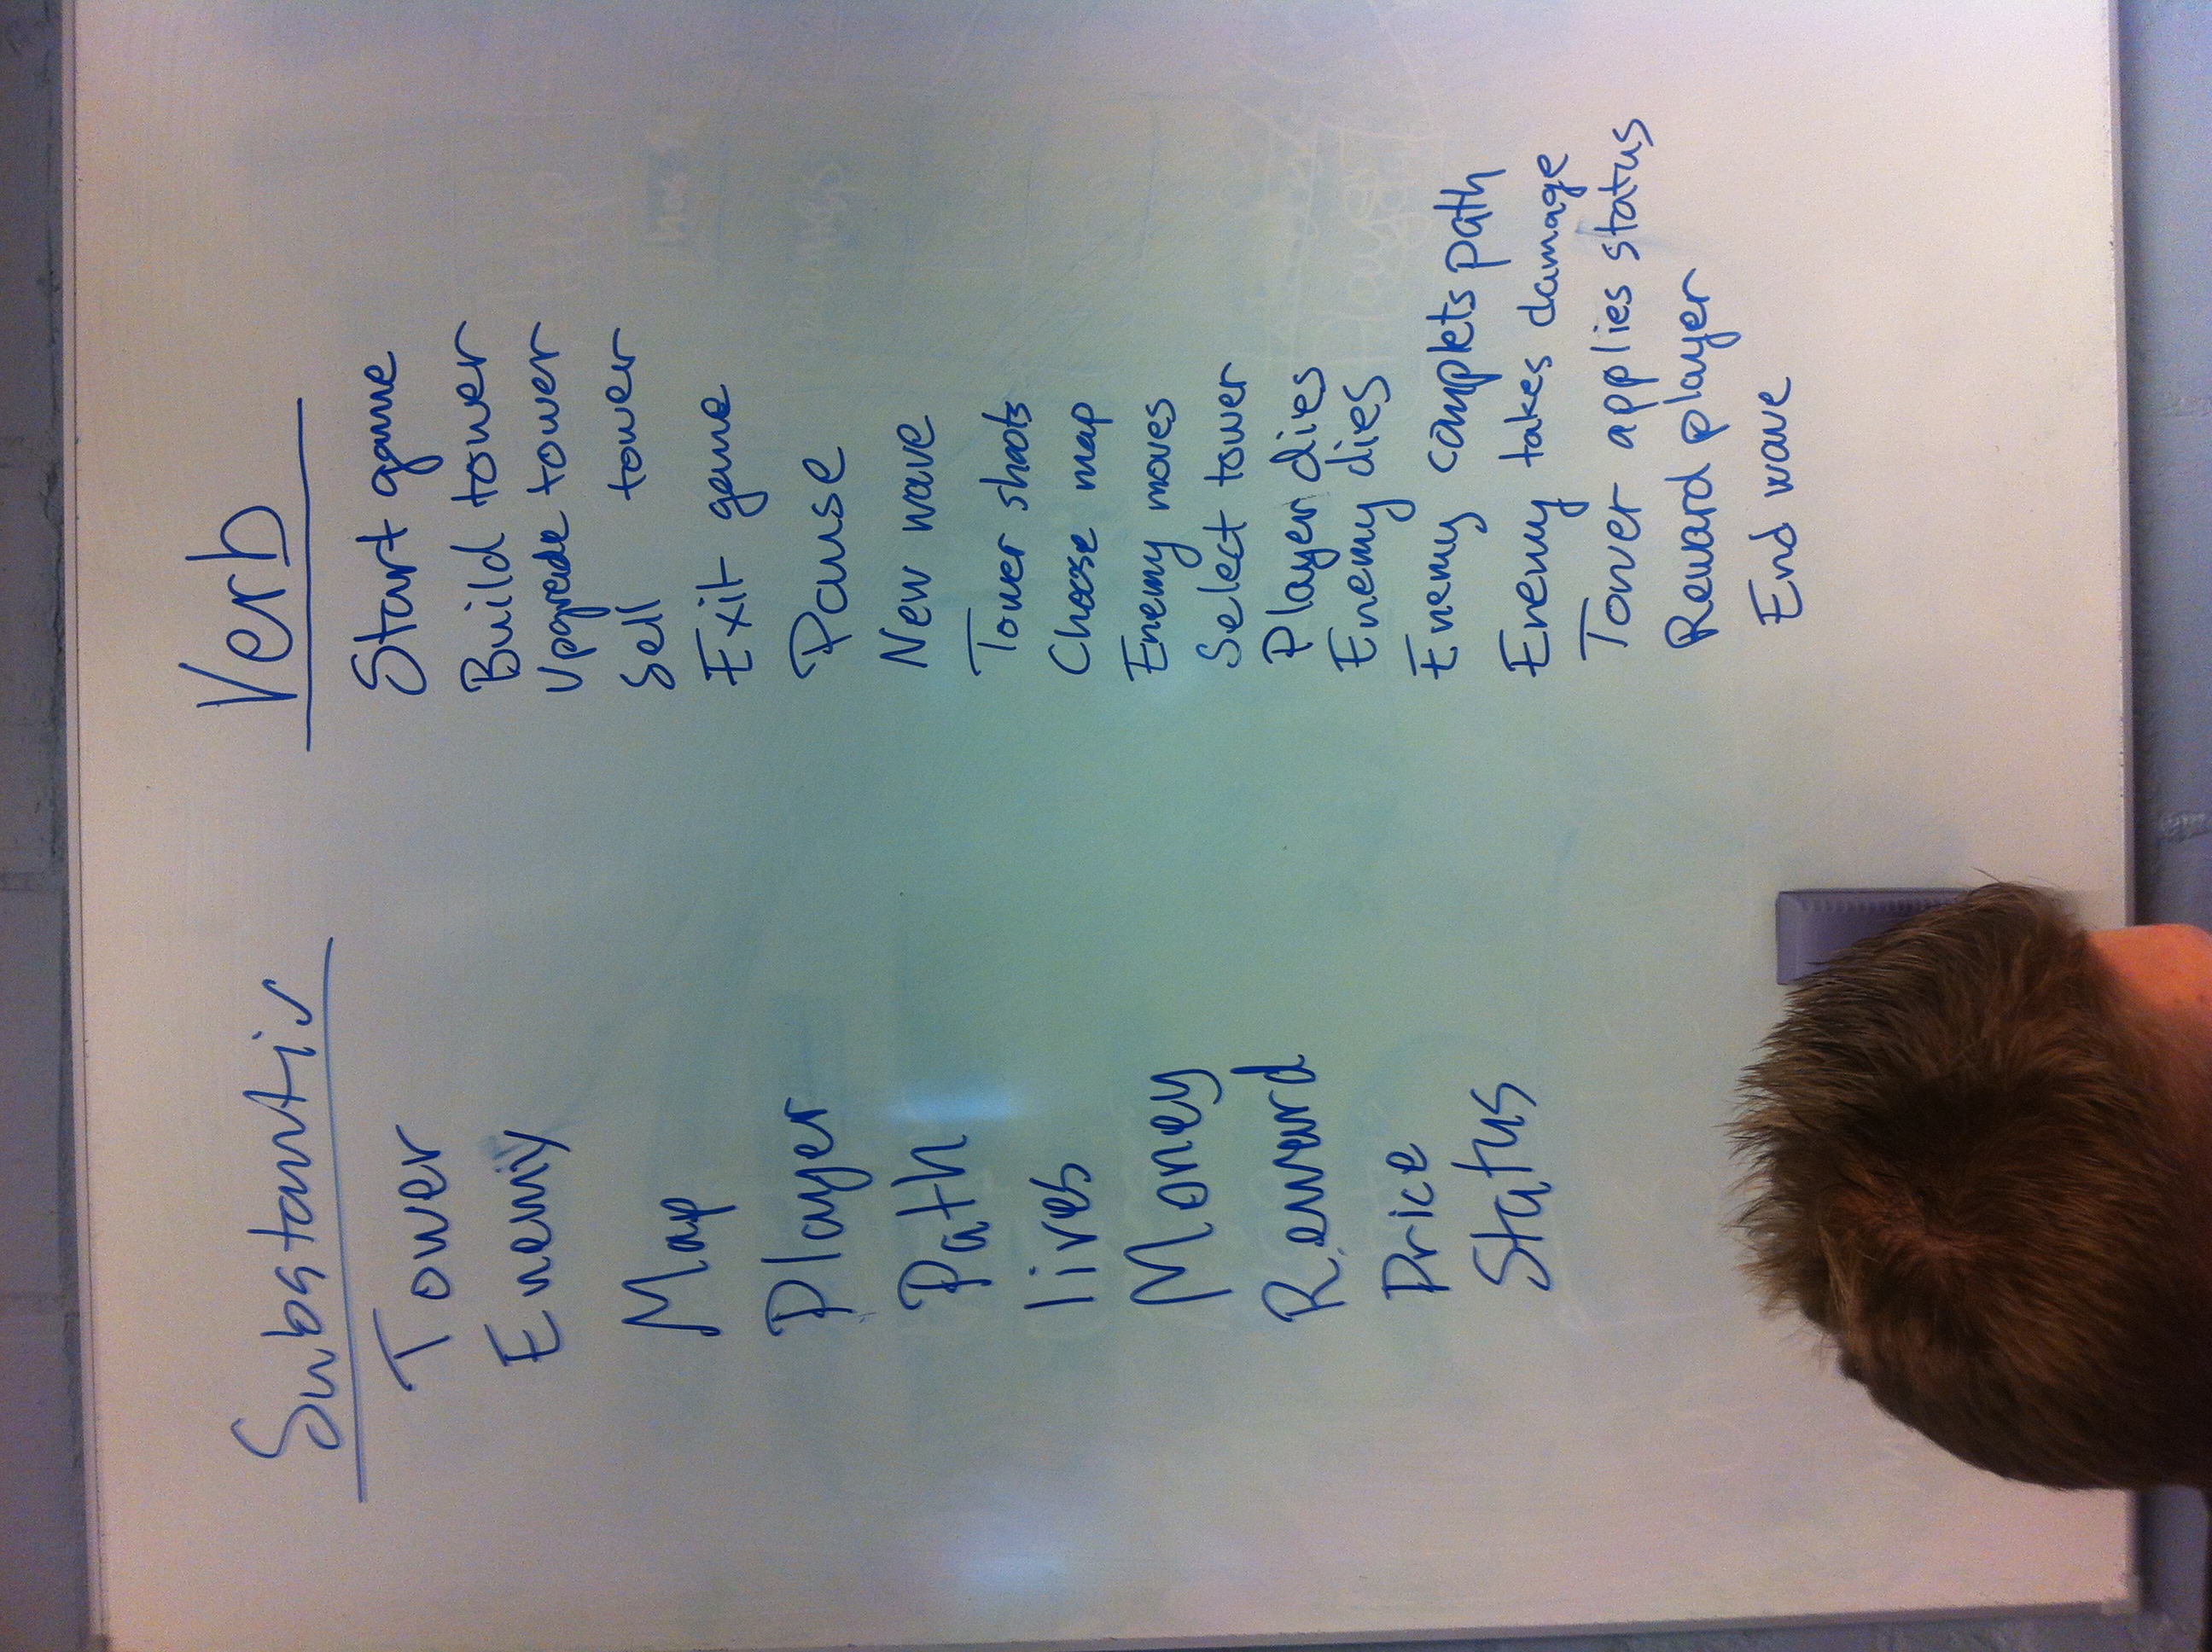 Substantiv
Tower
Enemy
Map
Player
Path
lives
Money
Reward
Price
Status
Verb
Start game
Build tower
Upgrade tower
Sell tower
Exit game
Pause
New wave
Tower shoots
Choose map
Enemy moves
Select tower
Player dies
Enemy dies
Enemy complets path
Enemy takes damage
Tower applies status
Reward player
End wave